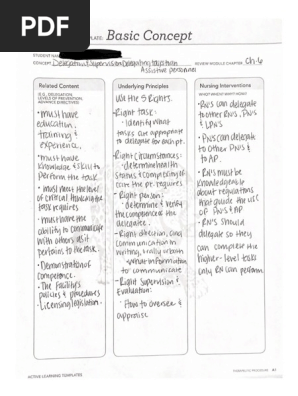 PDF
PLATE: Basic Concept
STUDENT NAME
CONCEPT Delegation & Supervision Delegating to
Assistive personnel
REVIEW MODULE CHAPTER Ch-6
Related Content
(E.G., DELEGATION,
LEVELS OF PREVENTION,
ADVANCE DIRECTIVES)
• must have
education,
training &
experience.
• must have
knowledge & skill to
perform the task.
• must meet the level
of critical thinking the
task requires.
• must have the
ability to communicate
with others as it
pertains to the task.
• Demonstration of
competence.
• The facility's
policies & procedures
• Licensing legislation.
Underlying Principles
Use the 5 Rights.
- Right task:
• Identify what
tasks are appropriate
to delegate for each pt.
- Right circumstances:
• determine health
status & complexity of
care the pt. requires
- Right person:
• determine & verify
the competence of the
delegatee.
- Right direction and
communication in
writing, orally or both
• What information
to communicate
- Right Supervision &
Evaluation:
• How to oversee &
appraise
Nursing Interventions
WHO? WHEN? WHY? HOW?
• RN's can delegate
to other RNs, PN's
& LPN's
• PN's can delegate
to other PN's &
to AP.
• RN's must be
knowledgeable
about regulations
that guide the use
of PN's & AP
• RN's should
delegate so they
can complete the
higher-level tasks
only RN can perform.
ACTIVE LEARNING TEMPLATES
THERAPEUTIC PROCEDURE A1